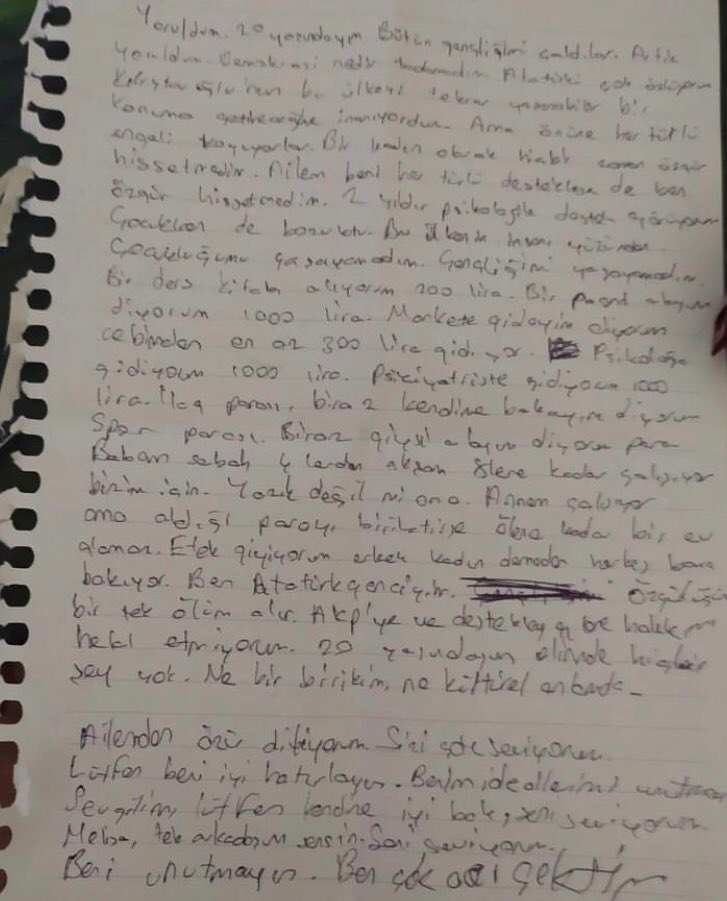 Yoruldum. 20 yaşındayım Bütün gençliğimi çaldılar. Artık
yoruldum. Demokrasi nedir tadamadım. Atatürkü çok özlüyorum
Kılıçdaroğlu'nun bu ülkeyi tekrar yaşanabilir bir
konuma getireceğine inanıyordum. Ama önüne her türlü
engeli koyuyorlar. Bir kadın olarak hiçbir zaman özgür
hissetmedim. Ailem beni her türlü desteklese de ben
özgür hissetmedim. 2 yıldır psikolojik destek görüyorum
Çocukken de bozuktu. Bu ülkenin insanı yüzünden
Çocukluğumu yaşayamadım. Gençliğimi yaşayamadım.
Bir ders kitabı alıyorum 200 lira. Bir
diyorum 1000 lira. Markete gideyim diyorum
cebimden en az 300 lira gidiyor. Psikoloğa
gidiyorum 1000 lira. Psikiyatriste gidiyorum 1000
lira. İlaç parası, biraz kendime bakayım diyorum
Spor parası. Biraz giysi alayım diyorum para
Babam sabah lerden akşam lere kadar çalışıyor
bizim için. Yazık değil mi ona. Annem çalışıyor
ama aldığı parayı biriktirse ölene kadar bir ev
alamaz. Etek giyiyorum erkek kadın demeden herkes bana
bakıyor. Ben Atatürk genciyim. Özgürlüğümü
bir tek ölüm alır. Akp'ye ve destekleyen hakkımı
helal etmiyorum. 20 yaşındayım elimde hiçbir
şey yok. Ne bir birikim, ne kültürel
Ailemden özür diliyorum. Sizi çok seviyorum.
Lütfen beni iyi hatırlayın. Benim ideallerimi unutmayın
Sevgilim, lütfen kendine iyi bak, seni seviyorum.
Melisa, tek arkadaşım sensin. Seni seviyorum.
Beni unutmayın. Ben çok acı çektim